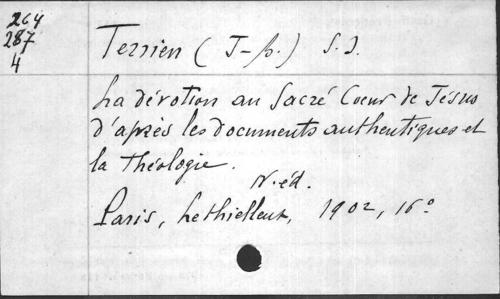 264
287
4
Terrien (J-b.) S.J.
La dévotion au Sacré Coeur de Jésus
d'après les documents authentiques et
la Théologie.
N. éd.
Paris, Lethielleux, 1902, 16°